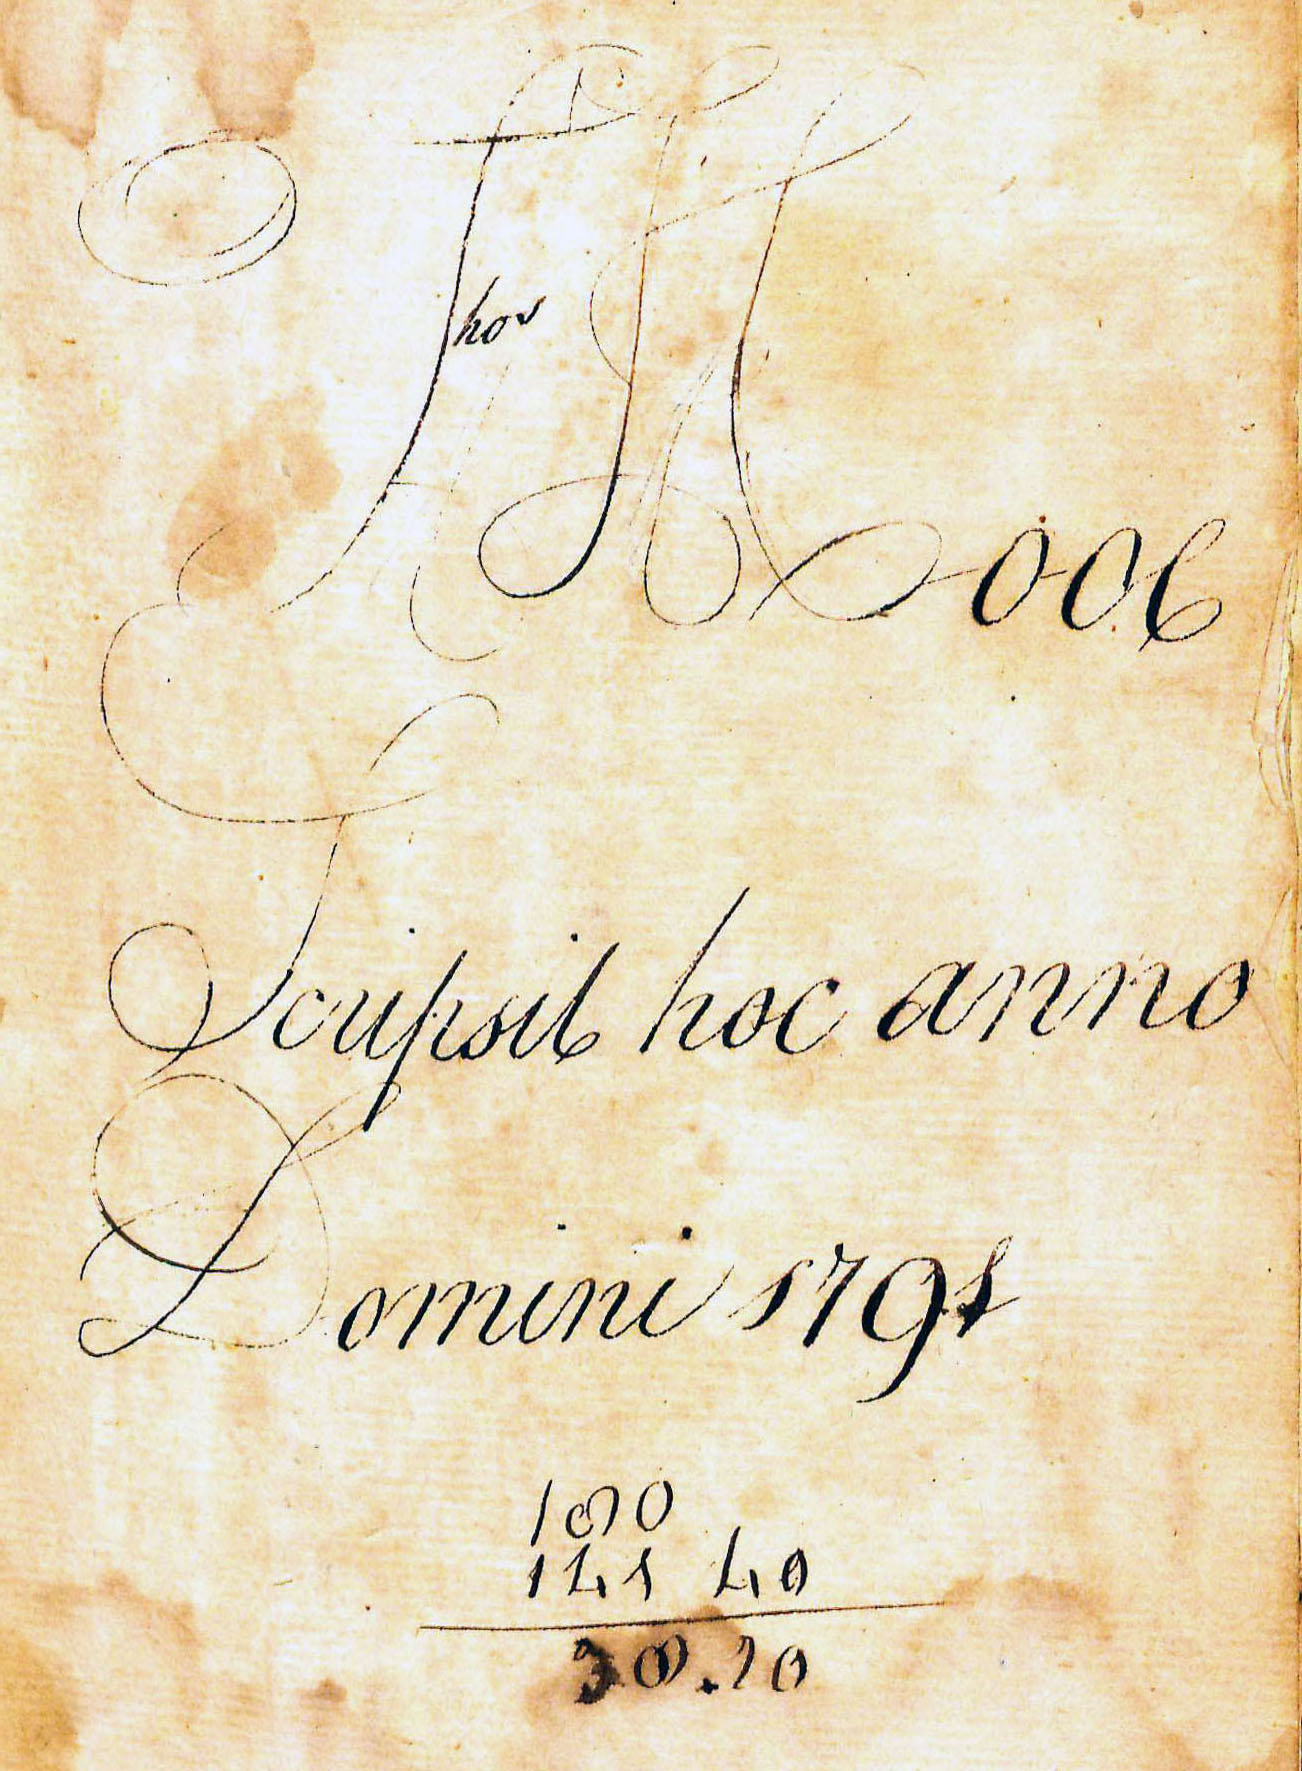 Thos
Scripsit hoc anno
Domini 1791
180
141 40
38.20